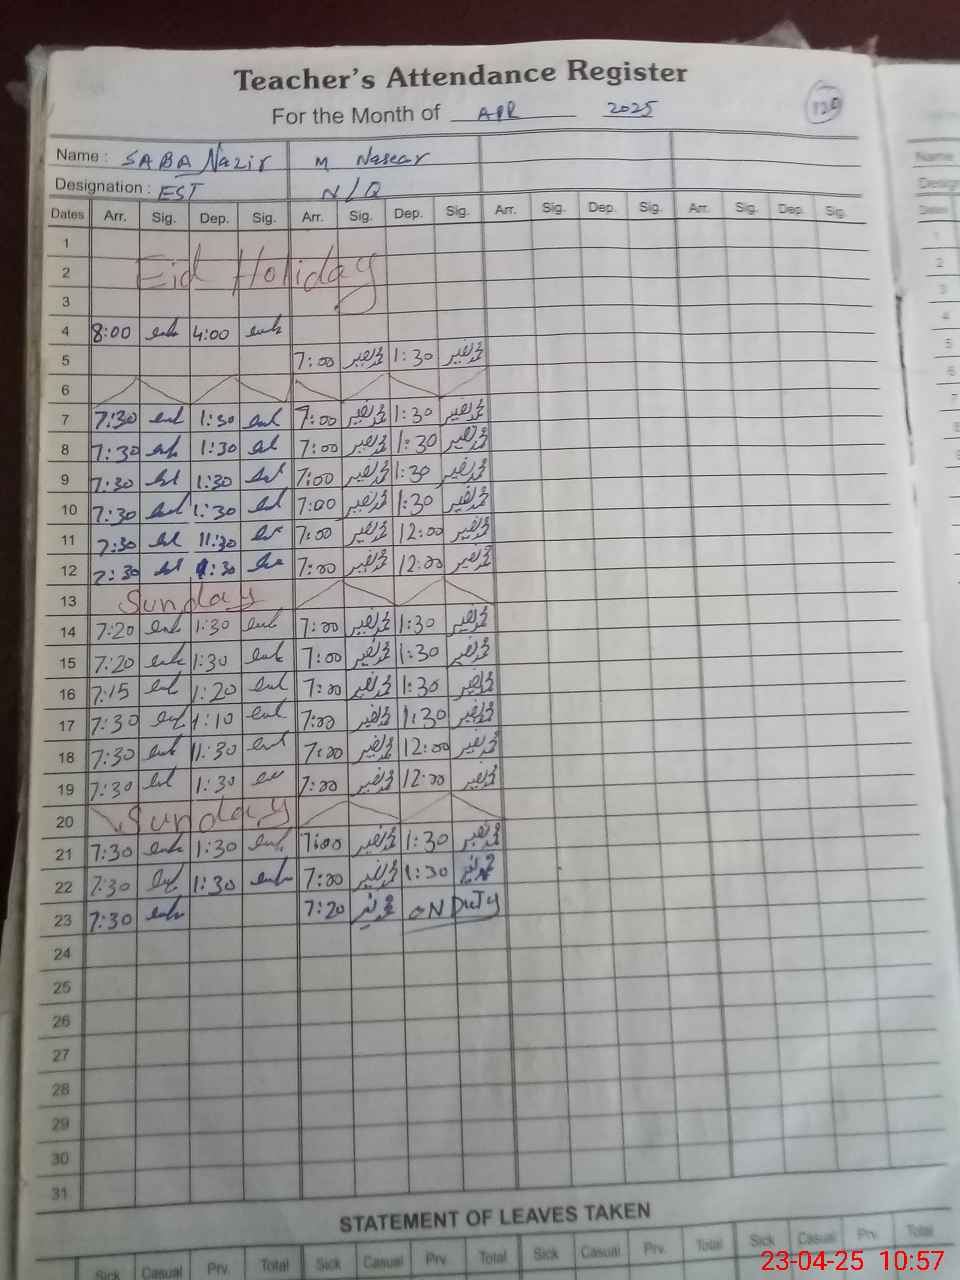 Teacher's Attendance Register
For the Month of APR 2025 120
Name : SABA Nazir M Naseer
Designation : EST N/Q
Dates Arr. Sig. Dep. Sig. Arr. Sig. Dep. Sig. Arr. Sig. Dep. Sig. Arr. Sig. Dep. Sig.
1
2 Eid Holiday
3
4 8:00 4:00
5 7:00 محمد نصیر 1:30 محمد نصیر
6
7 7:30 1:30 7:00 محمد نصیر 1:30 محمد نصیر
8 7:30 1:30 7:00 محمد نصیر 1:30 محمد نصیر
9 7:30 1:30 7:00 محمد نصیر 1:30 محمد نصیر
10 7:30 1:30 7:00 محمد نصیر 1:30 محمد نصیر
11 7:30 11:30 7:00 محمد نصیر 12:00 محمد نصیر
12 7:30 1:30 7:00 محمد نصیر 12:00 محمد نصیر
13 Sunday
14 7:20 1:30 7:00 محمد نصیر 1:30 محمد نصیر
15 7:20 1:30 7:00 محمد نصیر 1:30 محمد نصیر
16 7:15 1:20 7:00 محمد نصیر 1:30 محمد نصیر
17 7:30 1:10 7:00 محمد نصیر 1:30 محمد نصیر
18 7:30 11:30 7:00 محمد نصیر 12:00 محمد نصیر
19 7:30 1:30 7:00 محمد نصیر 12:00 محمد نصیر
20 Sunday
21 7:30 1:30 7:00 محمد نصیر 1:30 محمد نصیر
22 7:30 1:30 7:00 محمد نصیر 1:30 محمد نصیر
23 7:30 7:20 محمد نصیر ON DUTY
24
25
26
27
28
29
30
31
STATEMENT OF LEAVES TAKEN
Sick Casual Prv. Total Sick Casual Prv. Total Sick Casual Prv. Total Sick Casual Prv. Total
23-04-25 10:57